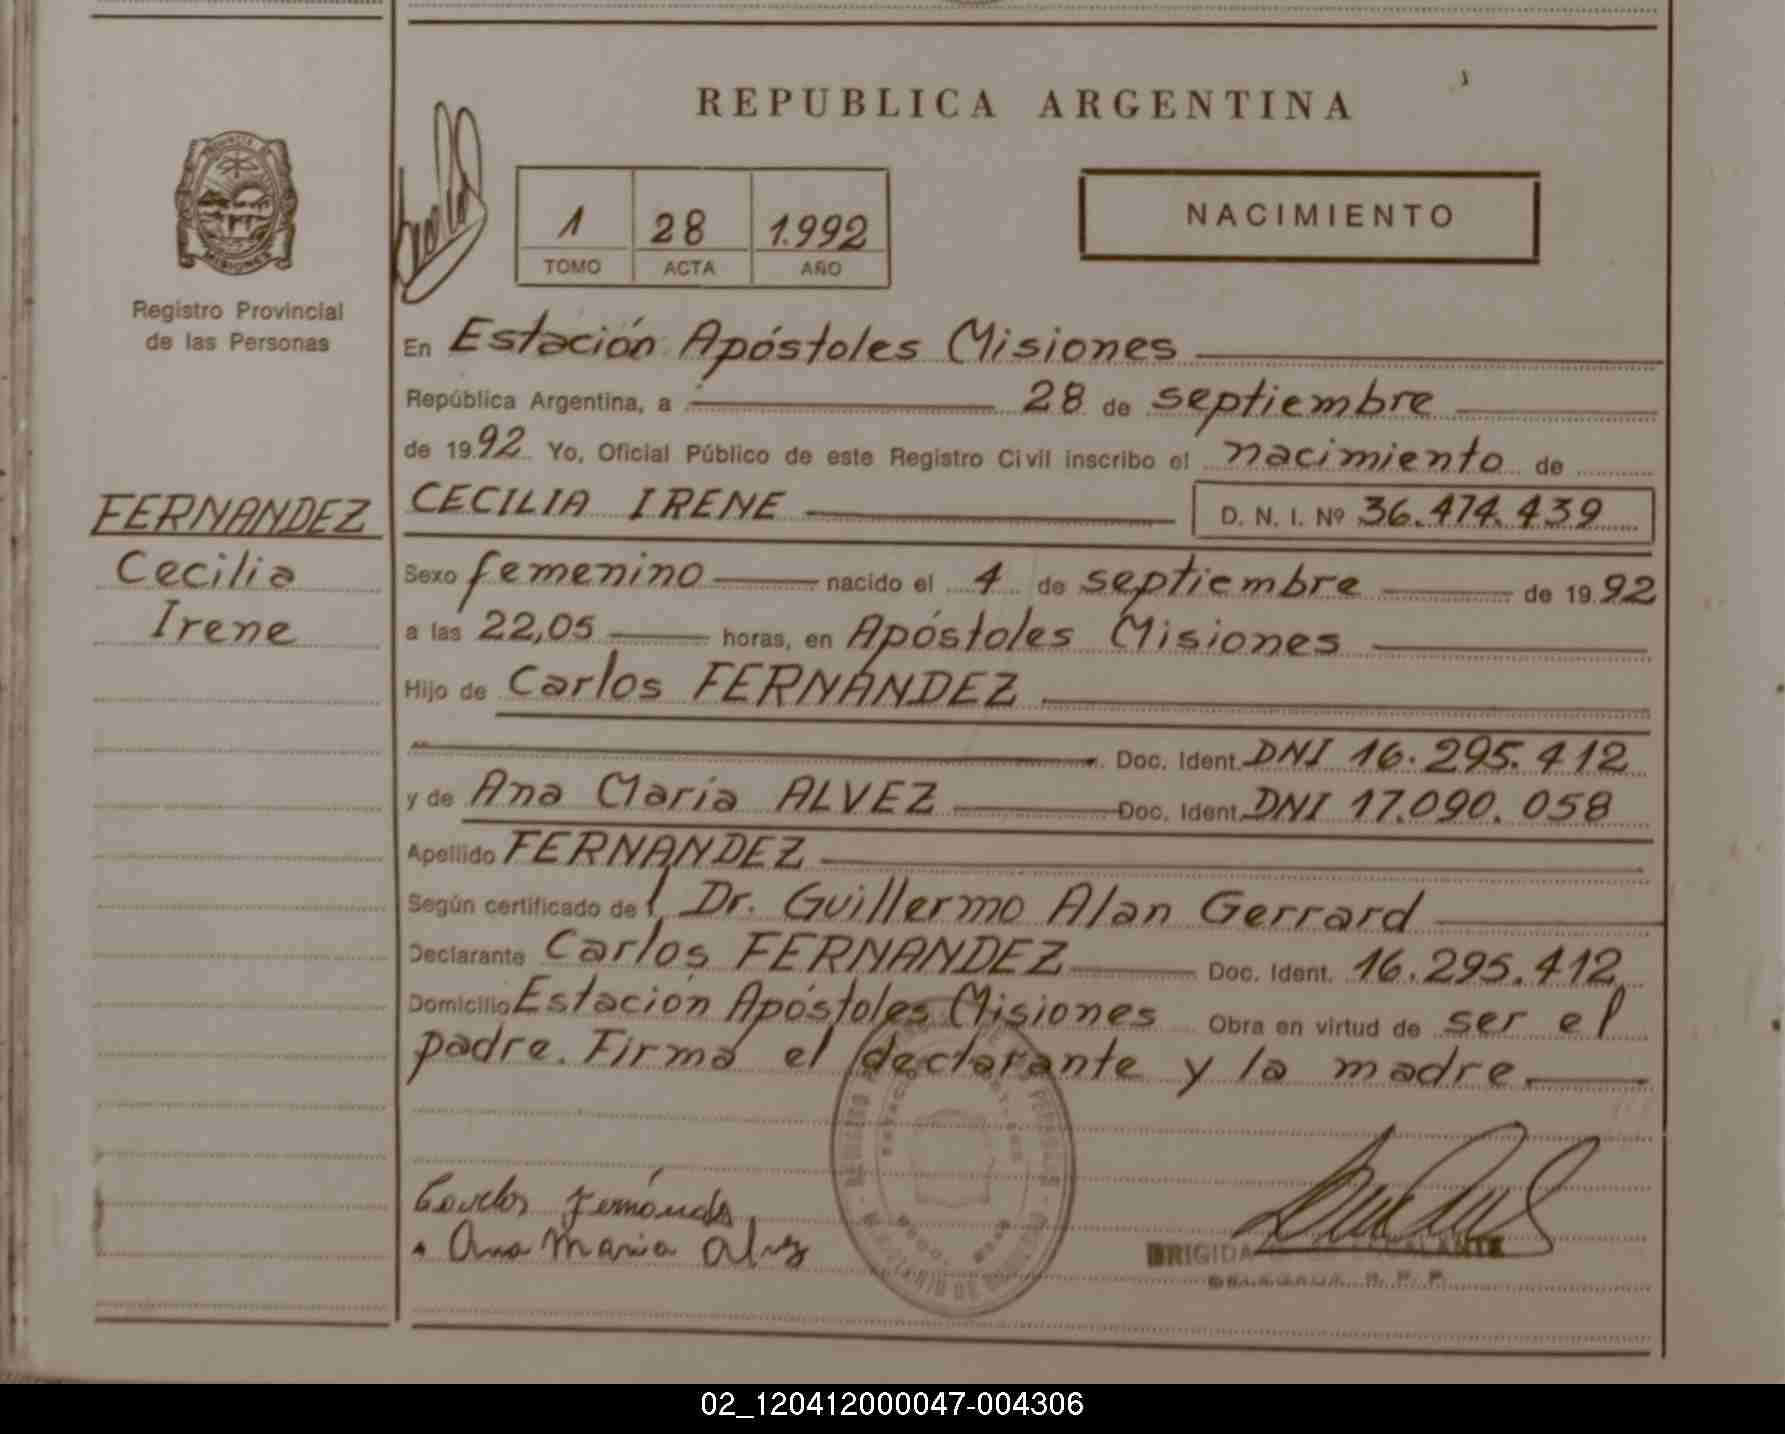 REPUBLICA ARGENTINA
PROVINCIA DE
MISIONES
Registro Provincial
de las Personas
1 28 1.992
TOMO ACTA AÑO
NACIMIENTO
En Estación Apóstoles Misiones
República Argentina, a 28 de septiembre
de 1992 Yo, Oficial Público de este Registro Civil inscribo el nacimiento de
FERNANDEZ
Cecilia
Irene
CECILIA IRENE D. N. I. Nº 36.474.439
Sexo femenino nacido el 4 de septiembre de 1992
a las 22,05 horas, en Apóstoles Misiones
Hijo de Carlos FERNÁNDEZ
Doc. Ident. DNI 16.295.412
y de Ana María ALVEZ Doc. Ident. DNI 17.090.058
Apellido FERNANDEZ
Según certificado del Dr. Guillermo Alan Gerrard
Declarante Carlos FERNANDEZ Doc. Ident. 16.295.412
Domicilio Estación Apóstoles Misiones Obra en virtud de ser el
padre. Firma el declarante y la madre
Carlos Fernández
Ana Maria Alvez
BRIGIDA ESCALANTE
DELEGADA R. P. P.
02_120412000047-004306